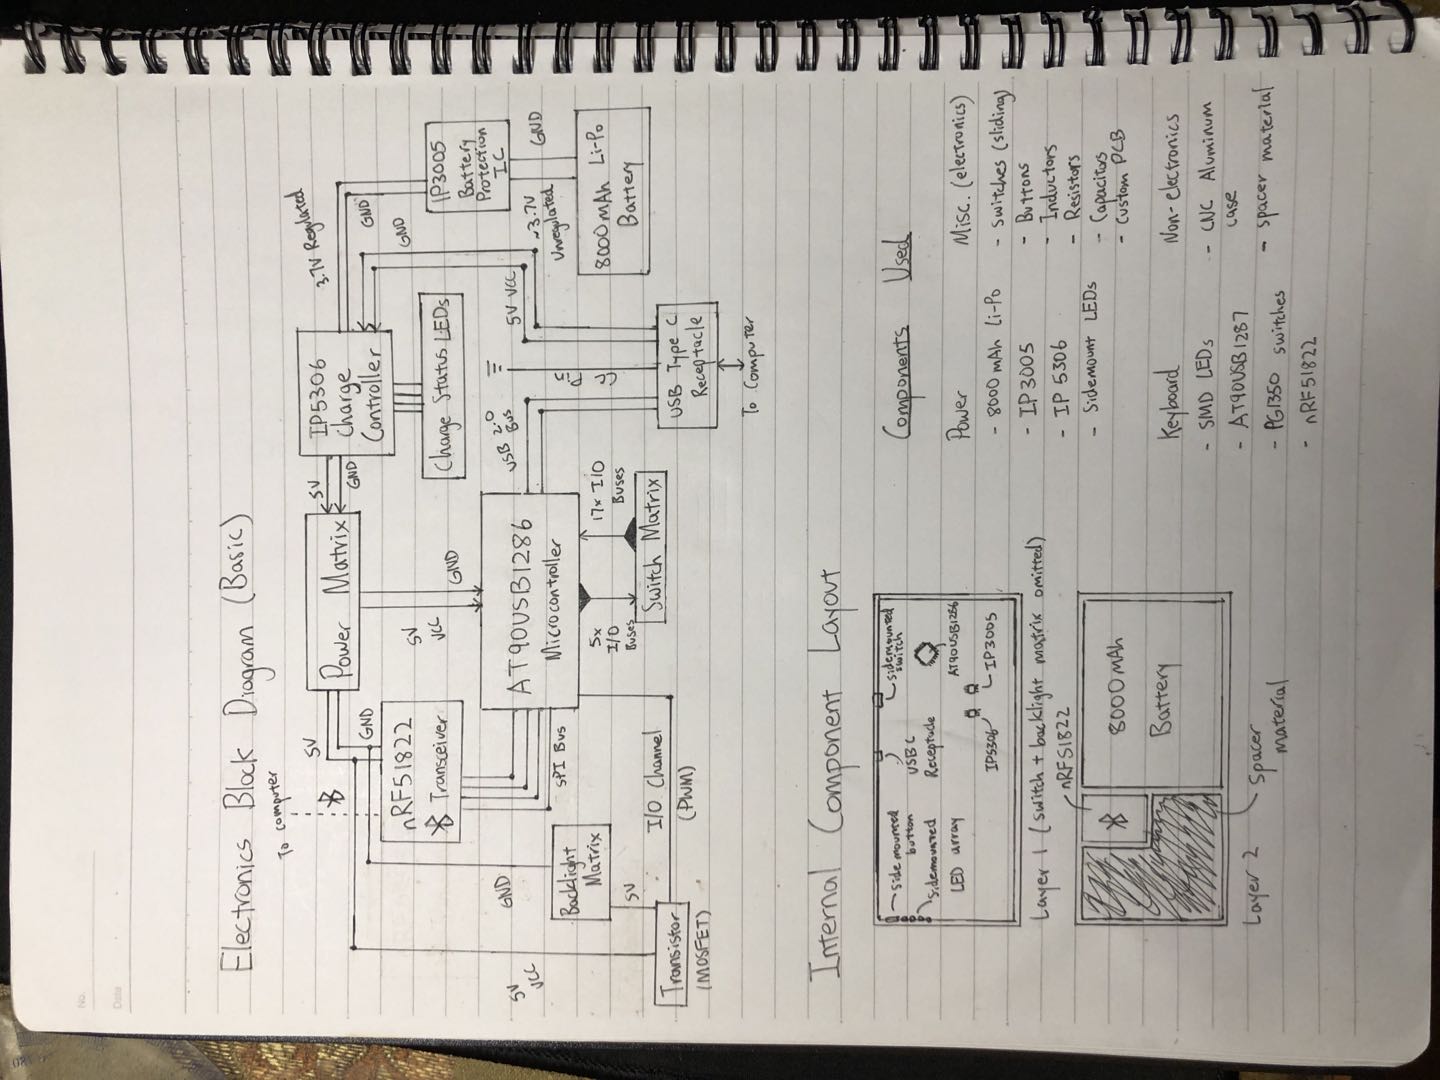 No.
Date
Electronics Block Diagram (Basic)
To computer
5V
GND
nRF51822
Transceiver
Power Matrix
5V
GND
IP5306
Charge
Controller
3.7V Regulated
GND
GND
IP3005
Battery
Protection
IC
~3.7V
Unregulated
GND
8000mAh Li-Po
Battery
Charge Status LEDs
5V
VCC
GND
AT90USB1286
Microcontroller
SPI Bus
USB 2.0
Bus
5V VCC
USB Type C
Receptacle
To Computer
5x
I/O
Buses
17x I/O
Buses
Switch Matrix
GND
Backlight
Matrix
5V
I/O Channel
(PWM)
5V
VCC
Transistor
(MOSFET)
Internal Component Layout
sidemounted
button
sidemounted
LED array
USB C
Receptacle
sidemounted
switch
AT90USB1286
IP5306
IP3005
Layer 1 (switch + backlight matrix omitted)
nRF51822
8000mAh
Battery
Layer 2
Spacer
material
Components Used
Power
- 8000 mAh Li-Po
- IP3005
- IP 5306
- Sidemount LEDs
Misc. (electronics)
- Switches (sliding)
- Buttons
- Inductors
- Resistors
- Capacitors
- Custom PCB
Keyboard
- SMD LEDs
- AT90USB1287
- PG1350 switches
- nRF51822
Non-electronics
- CNC Aluminum
case
- spacer material